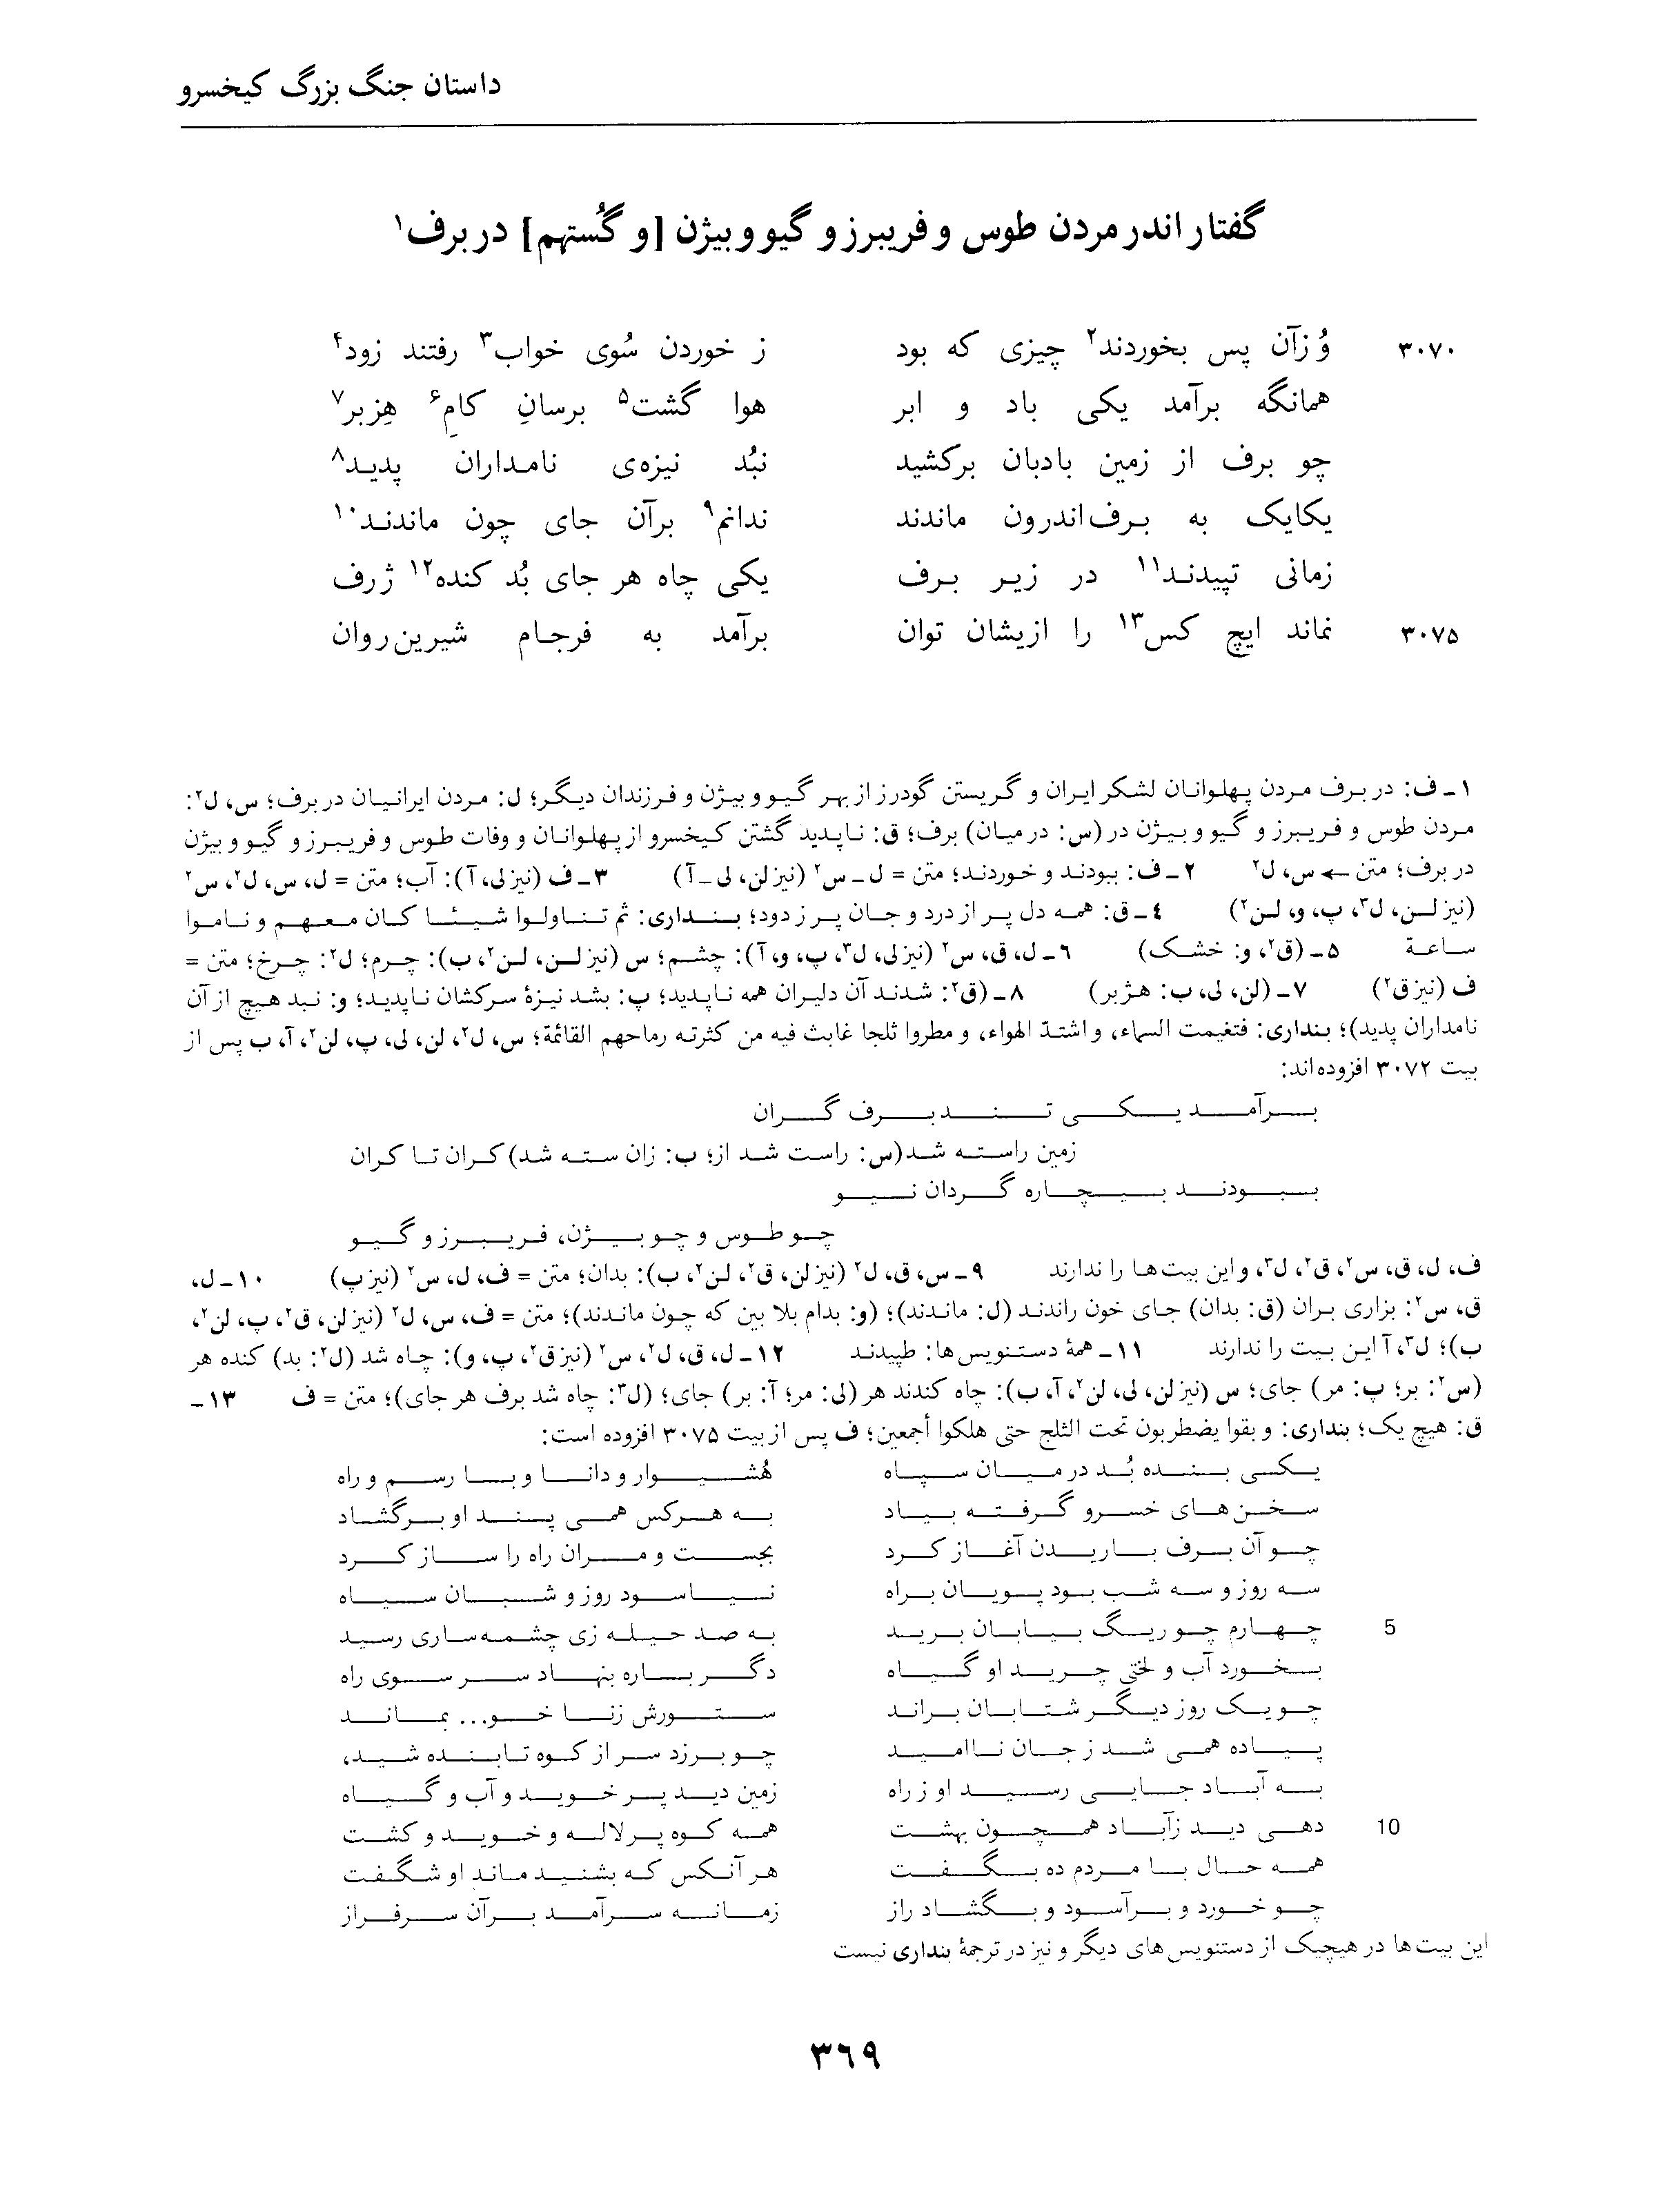 داستان جنگ بزرگ کیخسرو
گفتار اندر مردن طوس و فریبرز و گیو و بیژن [و گُستهم] در برف۱
۳۰۷۰ وُزآن پس بخوردند۲ چیزی که بود ز خوردن سُوی خواب۳ رفتند زود۴
همانگه برآمد یکی باد و ابر هوا گشت۵ برسانِ کامِ۶ هِزبر۷
چو برف از زمین بادبان برکشید نبُد نیزه‌ی نامداران پدید۸
یکایک به برف‌اندرون ماندند ندانم۹ برآن جای چون ماندند۱۰
زمانی تپیدند۱۱ در زیر برف یکی چاه هر جای بُد کنده۱۲ ژرف
۳۰۷۵ نماند ایچ کس۱۳ را ازیشان توان برآمد به فرجام شیرین‌روان
۱ـ ف: در برف مردن پهلوانان لشکر ایران و گریستن گودرز از بهر گیو و بیژن و فرزندان دیگر؛ ل: مردن ایرانیان در برف؛ س، ل۲:
مردن طوس و فریبرز و گیو و بیژن در (س: در میان) برف؛ ق: ناپدید گشتن کیخسرو از پهلوانان و وفات طوس و فریبرز و گیو و بیژن
در برف؛ متن ← س، ل۲ ۲ـ ف: ببودند و خوردند؛ متن = ل ـ س۲ (نیز لن، لی ـ آ) ۳ـ ف (نیز لی، آ): آب؛ متن = ل، س، ل۲، س۲
(نیز لن، ل۳، پ، و، لن۲) ٤ـ ق: همه دل پر از درد و جان پر ز دود؛ بنداری: ثم تناولوا شیئا کان معهم و ناموا
ساعة ۵ـ (ق۲، و: خشک) ۶ـ ل، ق، س۲ (نیز لی، ل۳، پ، و، آ): چشم؛ س (نیز لن، لن۲، ب): چرم؛ ل۲: چرخ؛ متن =
ف (نیز ق۲) ۷ـ (لن، لی، ب: هژبر) ۸ـ (ق۲: شدند آن دلیران همه ناپدید؛ پ: بشد نیزهٔ سرکشان ناپدید؛ و: نبد هیچ از آن
نامداران پدید)؛ بنداری: فتغیمت السماء، و اشتدّ الهواء، و مطروا ثلجا غابث فیه من کثرته رماحهم القائمة؛ س، ل۲، لن، لی، پ، لن۲، آ، ب پس از
بیت ۳۰۷۲ افزوده‌اند:
برآمد یکی تند برف گران
زمین راسته شد(س: راست شد از؛ ب: زان سته شد) کران تا کران
ببودند بیچاره گردان نیو
چو طوس و چو بیژن، فریبرز و گیو
ف، ل، ق، س۲، ق۲، ل۳، و این بیت‌ها را ندارند ۹ـ س، ق، ل۲ (نیز لن، ق۲، لن۲، ب): بدان؛ متن = ف، ل، س۲ (نیز پ) ۱۰ـ ل،
ق، س۲: بزاری بران (ق: بدان) جای خون راندند (ل: ماندند)؛ (و: بدام بلا بین که چون ماندند)؛ متن = ف، س، ل۲ (نیز لن، ق۲، پ، لن۲،
ب)؛ ل۳، آ این بیت را ندارند ۱۱ـ همهٔ دستنویس‌ها: طپیدند ۱۲ـ ل، ق، ل۲، س۲ (نیز ق۲، پ، و): چاه شد (ل۲: بد) کنده هر
(س۲: بر؛ پ: مر) جای؛ س (نیز لن، لی، لن۲، آ، ب): چاه کندند هر (لی: مر؛ آ: بر) جای؛ (ل۳: چاه شد برف هر جای)؛ متن = ف ۱۳ـ
ق: هیچ یک؛ بنداری: و بقوا یضطربون تحت الثلج حتی هلکوا أجمعین؛ ف پس از بیت ۳۰۷۵ افزوده است:
یکی بنده بُد در میان سپاه هُشیوار و دانا و با رسم و راه
سخن‌های خسرو گرفته بیاد به هرکس همی پند او برگشاد
چو آن برف باریدن آغاز کرد بجست و مران راه را ساز کرد
سه روز و سه شب بود پویان براه نیاسود روز و شبان سیاه
5 چهارم چو ریگ بیابان برید به صد حیله زی چشمه‌ساری رسید
بخورد آب و لختی چرید او گیاه دگر باره بنهاد سر سوی راه
چو یک روز دیگر شتابان براند ستورش زنا خو... بماند
پیاده همی شد ز جان ناامید چو برزد سر از کوه تابنده شید،
به آباد جایی رسید او ز راه زمین دید پر خوید و آب و گیاه
10 دهی دید زآباد همچون بهشت همه کوه پر لاله و خوید و کشت
همه حال با مردم ده بگفت هر آنکس که بشنید ماند او شگفت
چو خورد و برآسود و بگشاد راز زمانه سرآمد برآن سرفراز
این بیت‌ها در هیچیک از دستنویس‌های دیگر و نیز در ترجمهٔ بنداری نیست
۳٦۹